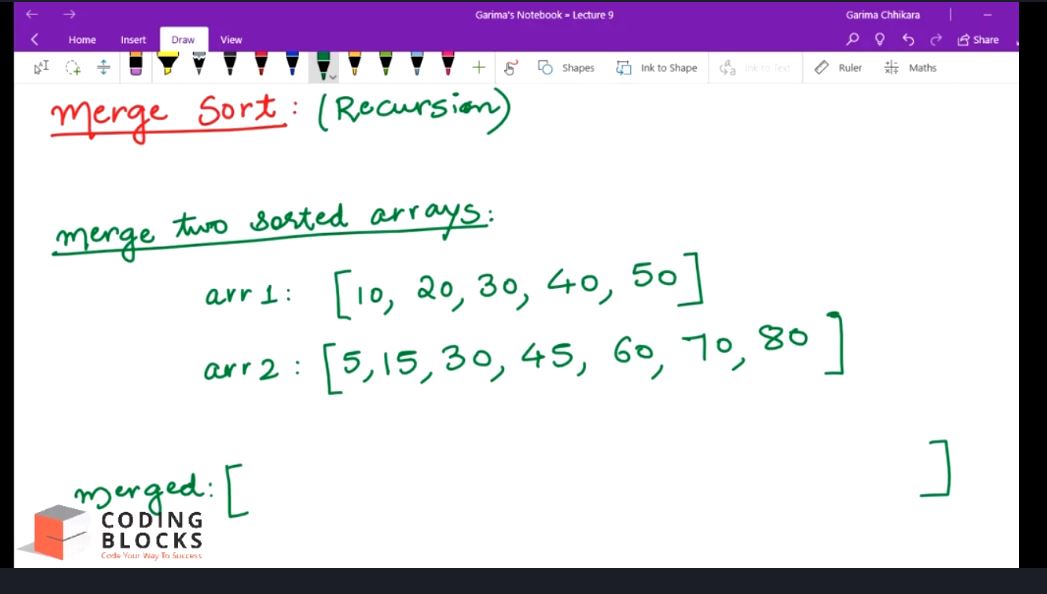 Garima's Notebook » Lecture 9
Garima Chhikara
Home Insert Draw View
Share
Shapes Ink to Shape Ink to Text Ruler Maths
Merge Sort: (Recursion)
merge two sorted arrays:
arr 1: [10, 20, 30, 40, 50]
arr 2: [5, 15, 30, 45, 60, 70, 80]
merged: [ ]
CODING
BLOCKS
Code Your Way To Success